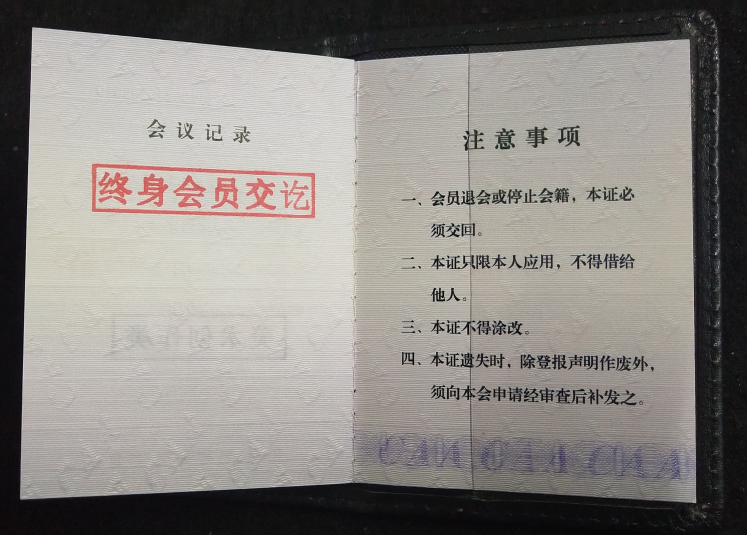 会议记录
终身会员交讫
注意事项
一、会员退会或停止会籍，本证必
须交回。
二、本证只限本人应用，不得借给
他人。
三、本证不得涂改。
四、本证遗失时，除登报声明作废外，
须向本会申请经审查后补发之。